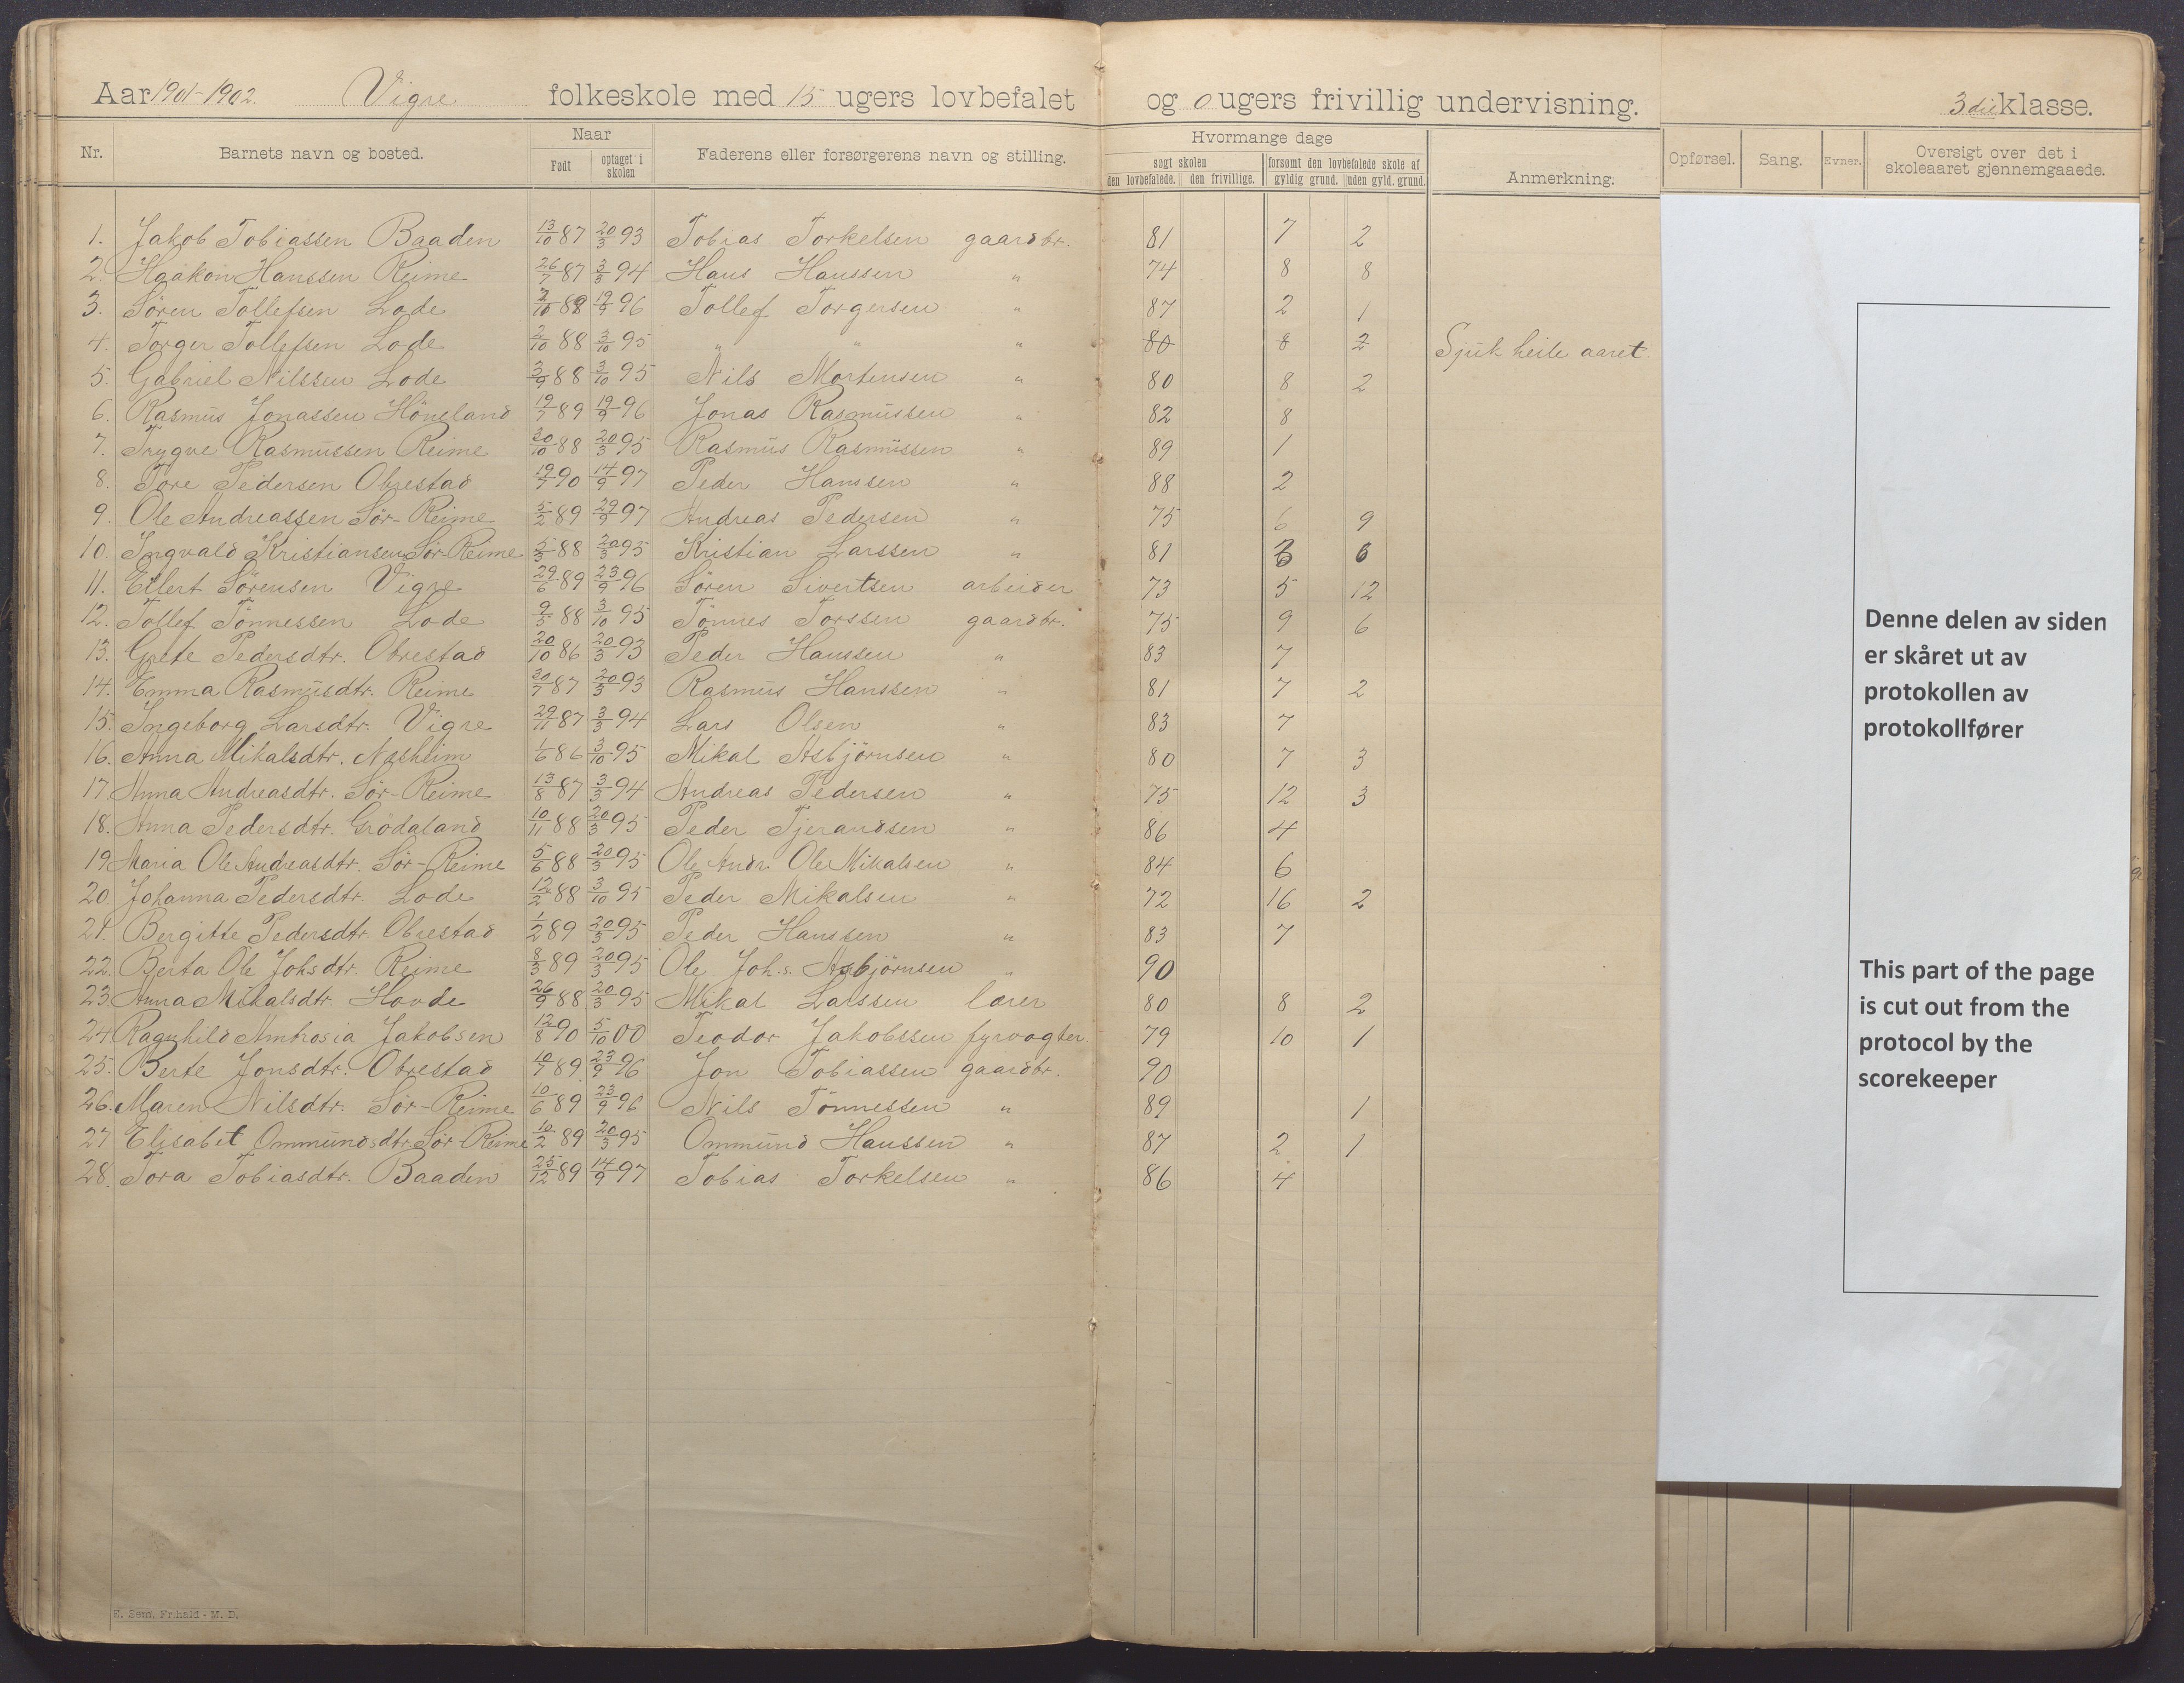 Aar 1901-1902. Vigre folkeskole med 15 ugers lovbefalet og 0 ugers frivillig undervisning. 3die klasse.
Nr. Barnets navn og bosted. Naar Født optaget i skolen Faderens eller forsørgerens navn og stilling. Hvormange dage søgt skolen den lovbefalede. den frivillige. forsømt den lovbefalede skole af gyldig grund. uden gyld. grund. Anmerkning. Opførsel. Sang. Evner. Oversigt over det i skoleaaret gjennemgaaede.
1. Jakob Tobiassen Baaden 13/10 87 20/3 93 Tobias Torkelsen gaardbr. 81 7 2
2. Haakon Hanssen Reime 26/7 87 3/3 94 Hans Hanssen " 74 8 8
3. Sören Tollefsen Lode 19/9 96 Tollef Torgersen " 87 2 1
4. Torger Tollefsen Lode 2/10 88 3/10 95 " " " 80 8 2 Sjuk heile aaret.
5. Gabriel Nilssen Lode 3/9 88 3/10 95 Nils Mortensen " 80 8 2
6. Rasmus Jonassen Höneland 19/7 89 19/9 96 Jonas Rasmussen " 82 8
7. Trygve Rasmussen Reime 30/10 88 20/3 95 Rasmus Rasmussen " 89 1
8. Tore Pedersen Obrestad 19/7 90 14/9 97 Peder Hanssen " 88 2
9. Ole Andreassen Sör-Reime 5/2 89 29/9 97 Andreas Pedersen " 75 6 9
10. Ingvald Kristiansen Sör-Reime 5/3 88 20/3 95 Kristian Larssen " 81 6
11. Eilert Sörensen Vigre 29/6 89 23/9 96 Sören Sivertsen arbeider 73 5 12
12. Tollef Tönnessen Lode 9/5 88 3/10 95 Tönnes Torssen gaardbr. 75 9 6
13. Grete Pedersdtr. Obrestad 20/10 86 20/3 93 Peder Hanssen " 83 7
14. Emma Rasmusdtr. Reime 30/7 87 20/3 93 Rasmus Hanssen " 81 7 2
15. Ingeborg Larsdtr. Vigre 29/11 87 3/3 94 Lars Olsen " 83 7
16. Anna Mikalsdtr. Nesheim 1/6 86 3/10 95 Mikal Asbjörnsen " 80 7 3
17. Anna Andreasdtr. Sör-Reime 13/8 87 3/3 94 Andreas Pedersen " 75 12 3
18. Anna Pedersdtr. Grödaland 10/11 88 20/3 95 Peder Tjerandsen " 86 4
19 Maria Ole Andreasdtr. Sör-Reime 5/6 88 20/3 95 Ole Andr. Ole Mikalsen " 84 6
20. Johanna Pedersdtr. Lode 12/2 88 3/10 95 Peder Mikalsen " 72 16 2
21. Bergitte Pedersdtr. Obrestad 1/2 89 20/3 95 Peder Hanssen " 83 7
22. Berta Ole Johsdtr. Reime 8/3 89 20/3 95 Ole Joh.s. Asbjörnsen " 90
23. Anna Mikalsdtr. Hovde 26/9 88 20/3 95 Mikal Larssen lærer 80 8 2
24 Ragnhild Ambrosia Jakobsen 12/8 90 5/10 00 Teodor Jakobssen fyrvogter 79 10 1
25. Berte Jonsdtr. Obrestad 10/7 89 23/9 96 Jon Tobiassen gaardbr. 90
26. Maren Nilsdtr. Sör-Reime 10/6 89 23/9 96 Nils Tönnessen " 89 1
27 Elisabet Ommundsdtr. Sör-Reime 10/2 89 20/3 95 Ommund Hanssen " 87 2 1
28. Tora Tobiasdtr. Baaden 25/12 89 14/9 97 Tobias Torkelsen " 86 4
E. Sem, Fr.hald - M. D.
Denne delen av siden
er skåret ut av
protokollen av
protokollfører
This part of the page
is cut out from the
protocol by the
scorekeeper